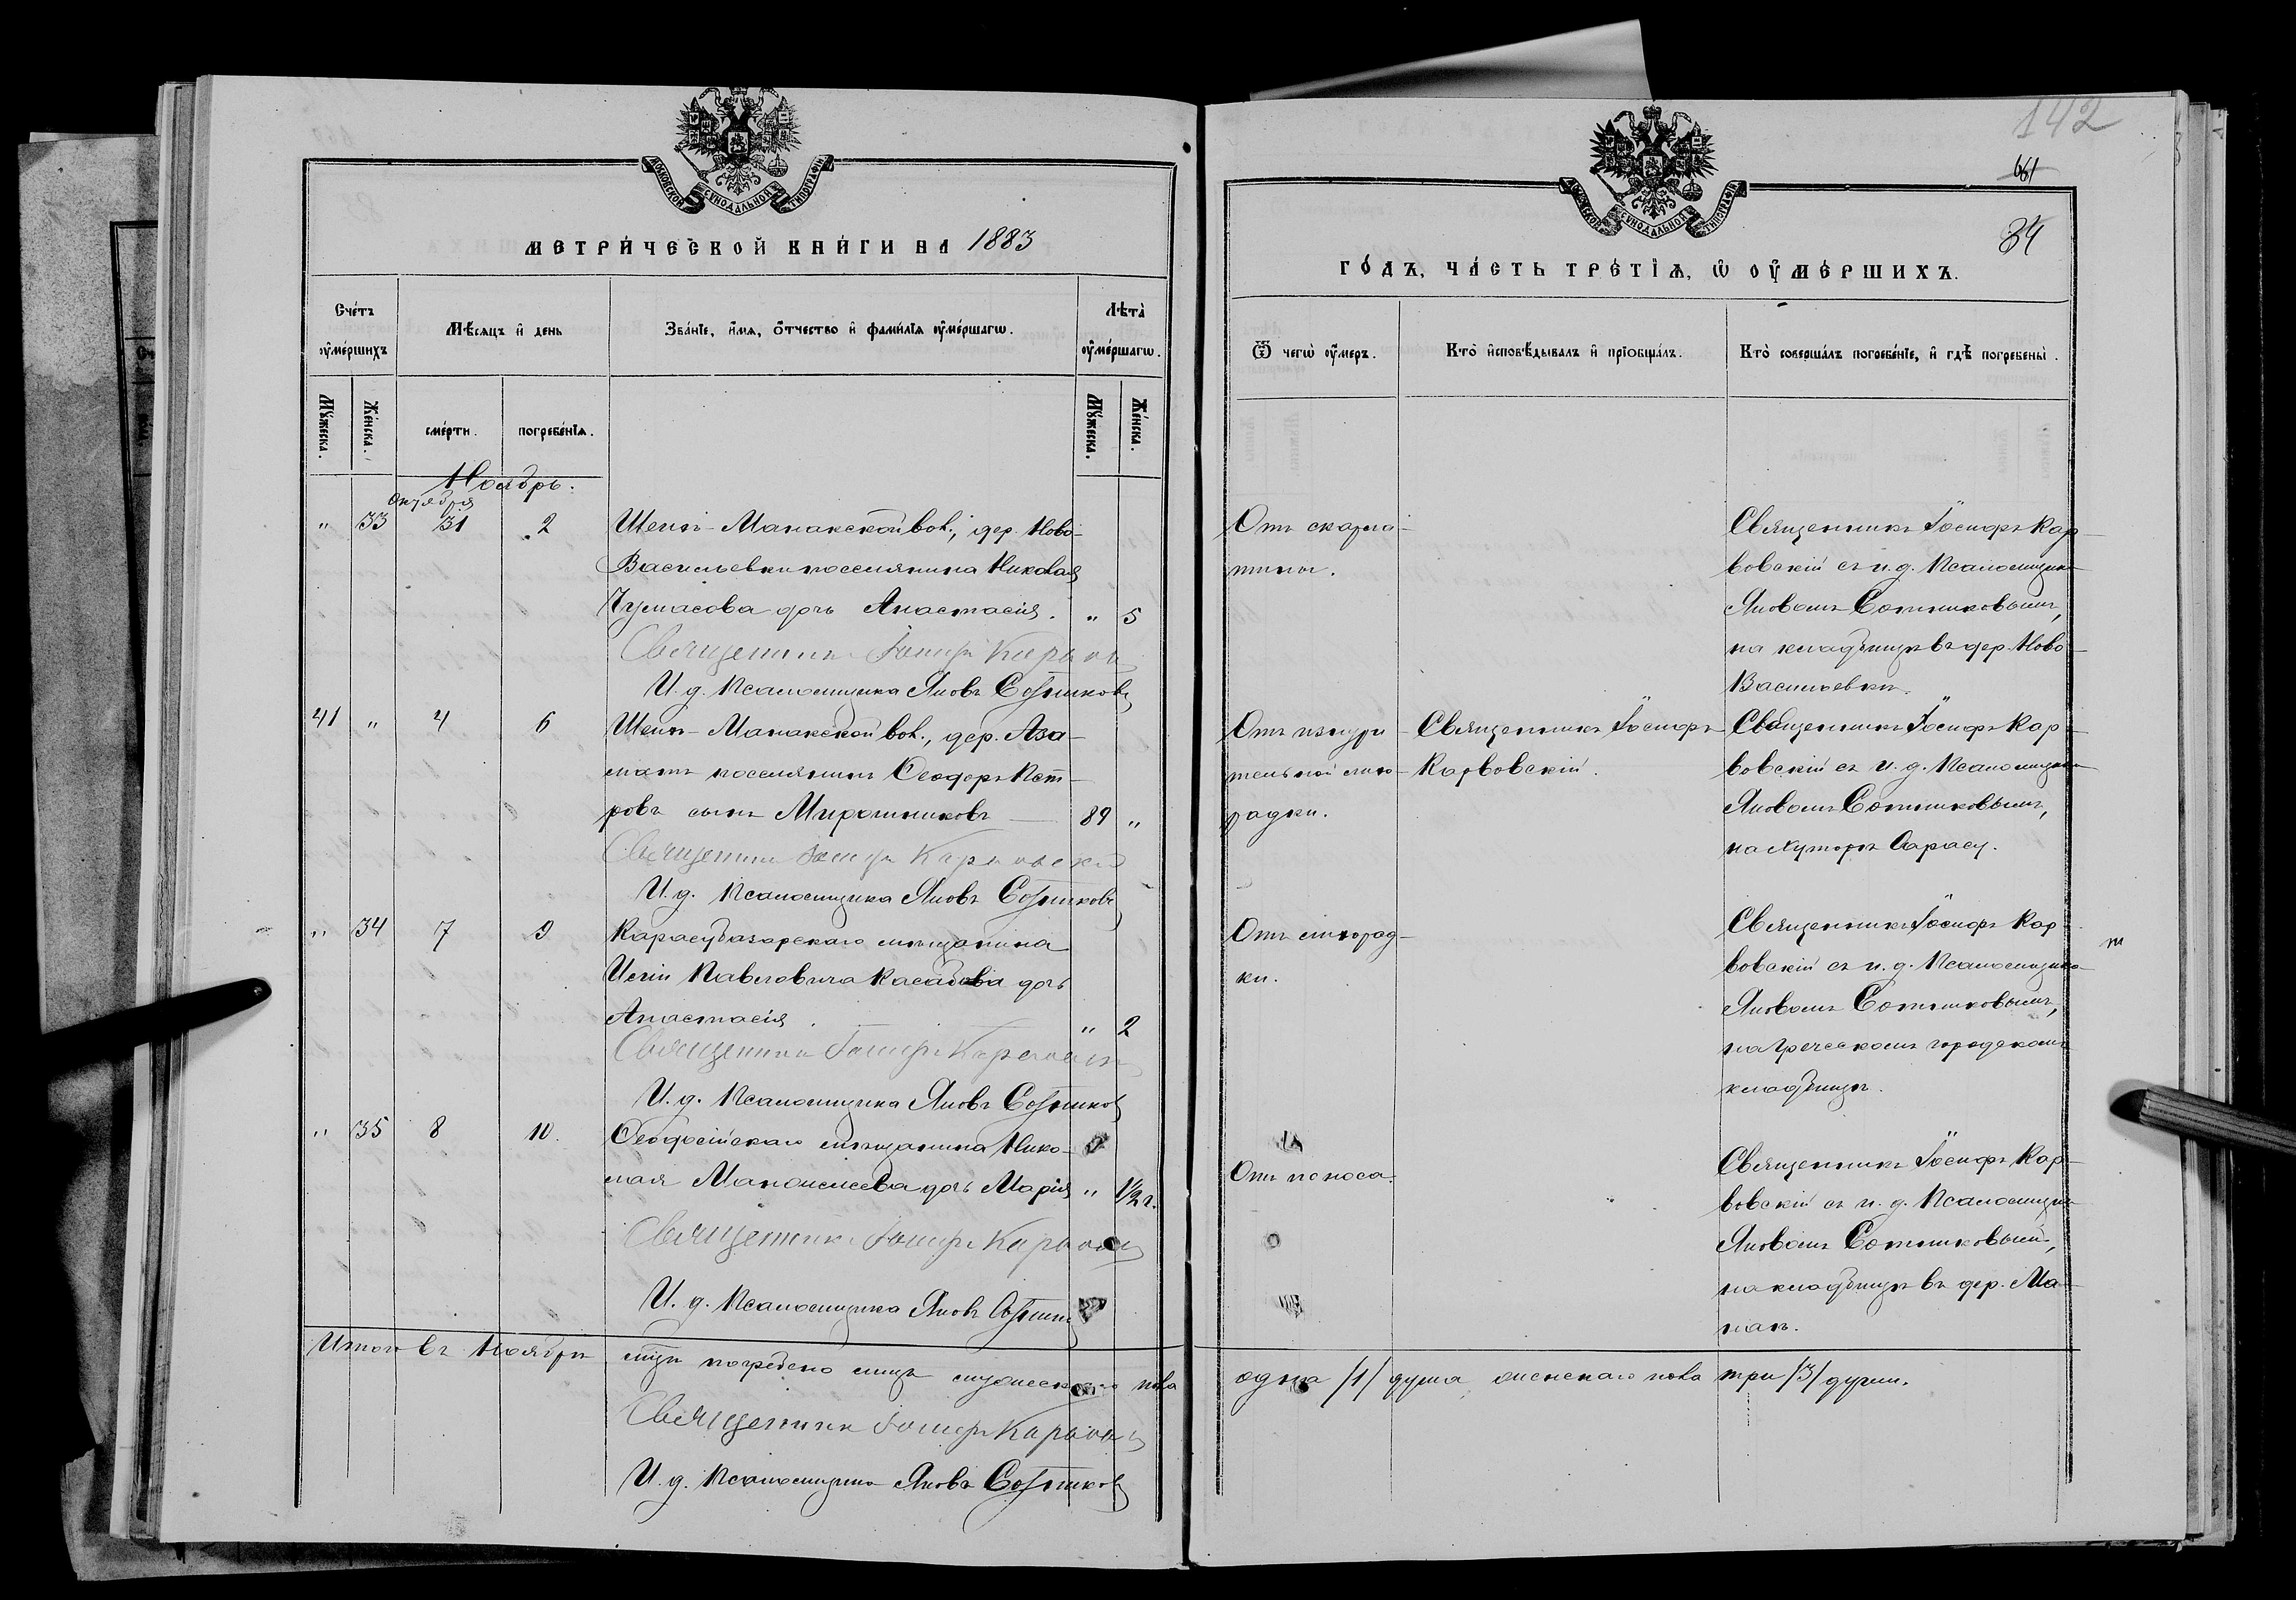 МОСКОВСКОЙ СѴНОДАЛЬНОЙ ТИПОГРАФІИ
МЕТРИ́ЧЕСКОЙ КНИ́ГИ НА 1883
Сче́тъ оумершихъ
Мѣсяцъ и день
Зва́нїе, и҆́мя, о҆́тчество и҆ фами́лїя оумершагѡ.
Лѣта̀ оумершагѡ.
Мꙋжеска.
Же́нска.
сме́рти.
погребе́нїя.
Мꙋжеска.
Же́нска.
Ноябрь.
Октября
" 33 31 2 Шеихъ-Монакской вол., дер. Ново-
Васильевки поселянина Николая
Чумасова дочь Анастасія. " 5
Священникъ Іосифъ Карвовскій
И. д. Псаломщика Яковъ Сотниковъ
41 " 4 6 Шеихъ-Монакской вол., дер. Аза-
матъ поселянинъ Ѳеодоръ Пет-
ровъ сынъ Мирошниковъ — 89 "
Священникъ Іосифъ Карвовскій
И. д. Псаломщика Яковъ Сотниковъ
" 34 7 9 Карасубазарскаго мѣщанина
Иліи Павловича Касабова дочь
Анастасія. " 2
Священникъ Іосифъ Карвовскій
И. д. Псаломщика Яковъ Сотниковъ
" 35 8 10. Ѳеодосійскаго мѣщанина Нико-
лая дочь Марія " 1/2 г.
Священникъ Іосифъ Карвовскій
И. д. Псаломщика Яковъ Сотниковъ
Итого въ Ноябрѣ мѣсяцѣ погребено лицъ мужескаго пола
Священникъ Іосифъ Карвовскій
И. д. Псаломщика Яковъ Сотниковъ
142
661
34
МОСКОВСКОЙ СѴНОДАЛЬНОЙ ТИПОГРАФІИ
ГО́ДЪ, ЧА́СТЬ ТРЕ́ТЇѦ, Ѡ ОУМЕ́РШИХЪ.
Ѿ чегѡ̀ оумеръ.
Кто̀ и҆сповѣдывалъ и҆ прїобща́лъ.
Кто̀ соверша́лъ погребе́нїе, и҆ гдѣ̀ погребены̀.
Отъ скарла-
тины.
Священникъ Іосифъ Кар-
вовскій съ и. д. Псаломщика
Яковомъ Сотниковымъ,
на кладбищѣ въ дер. Ново-
Васильевки.
Отъ изнури-
тельной лихо-
радки.
Священникъ Іосифъ
Карвовскій.
Священникъ Іосифъ Кар-
вовскій съ и. д. Псаломщика
Яковомъ Сотниковымъ,
на хуторѣ Сарасу.
Отъ лихорад-
ки.
Священникъ Іосифъ Кар-
вовскій съ и. д. Псаломщика
Яковомъ Сотниковымъ,
на Греческомъ городскомъ
кладбищѣ.
Отъ поноса.
Священникъ Іосифъ Кар-
вовскій съ и. д. Псаломщика
Яковомъ Сотниковымъ,
на кладбищѣ въ дер. Ма-
накъ.
одна /1/ душа женскаго пола три /3/ души.